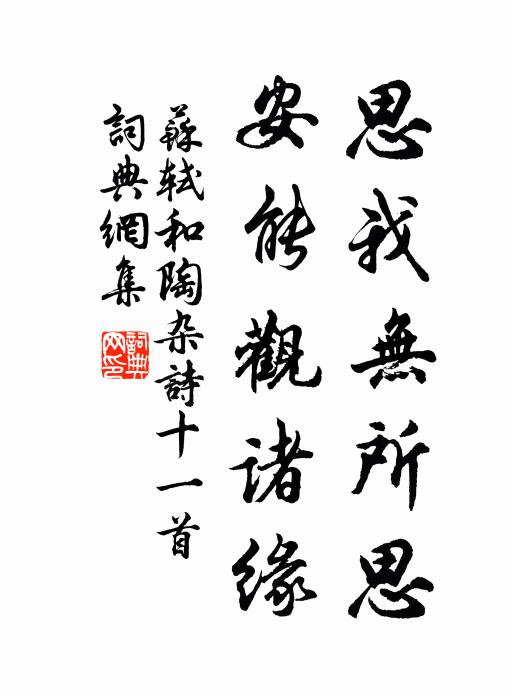 思我無所思
安能觀諸緣
蘇軾和陶杂詩十一首
詞典網集
詞典網印